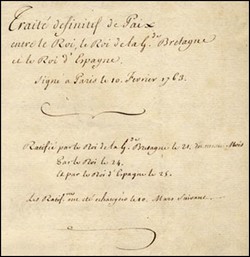 Traité definitif de Paix
entre le Roi, le Roi de la Gde Bretagne
et le Roi d'Espagne
Signé a Paris le 10. Fevrier 1763.
Ratifié par le Roi de la Gde Bretagne le 21. du même Mois
Par le Roi le 24.
Et par le Roi d'Espagne le 25.
Les Ratif.ons ont été echangées le 10. Mars Suivant.